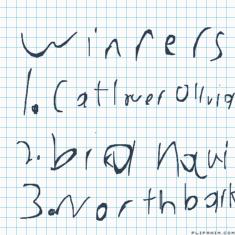 winners
1. Catlover Olivia
2. bird navi
3. Northbark
FLIPANIM.COM